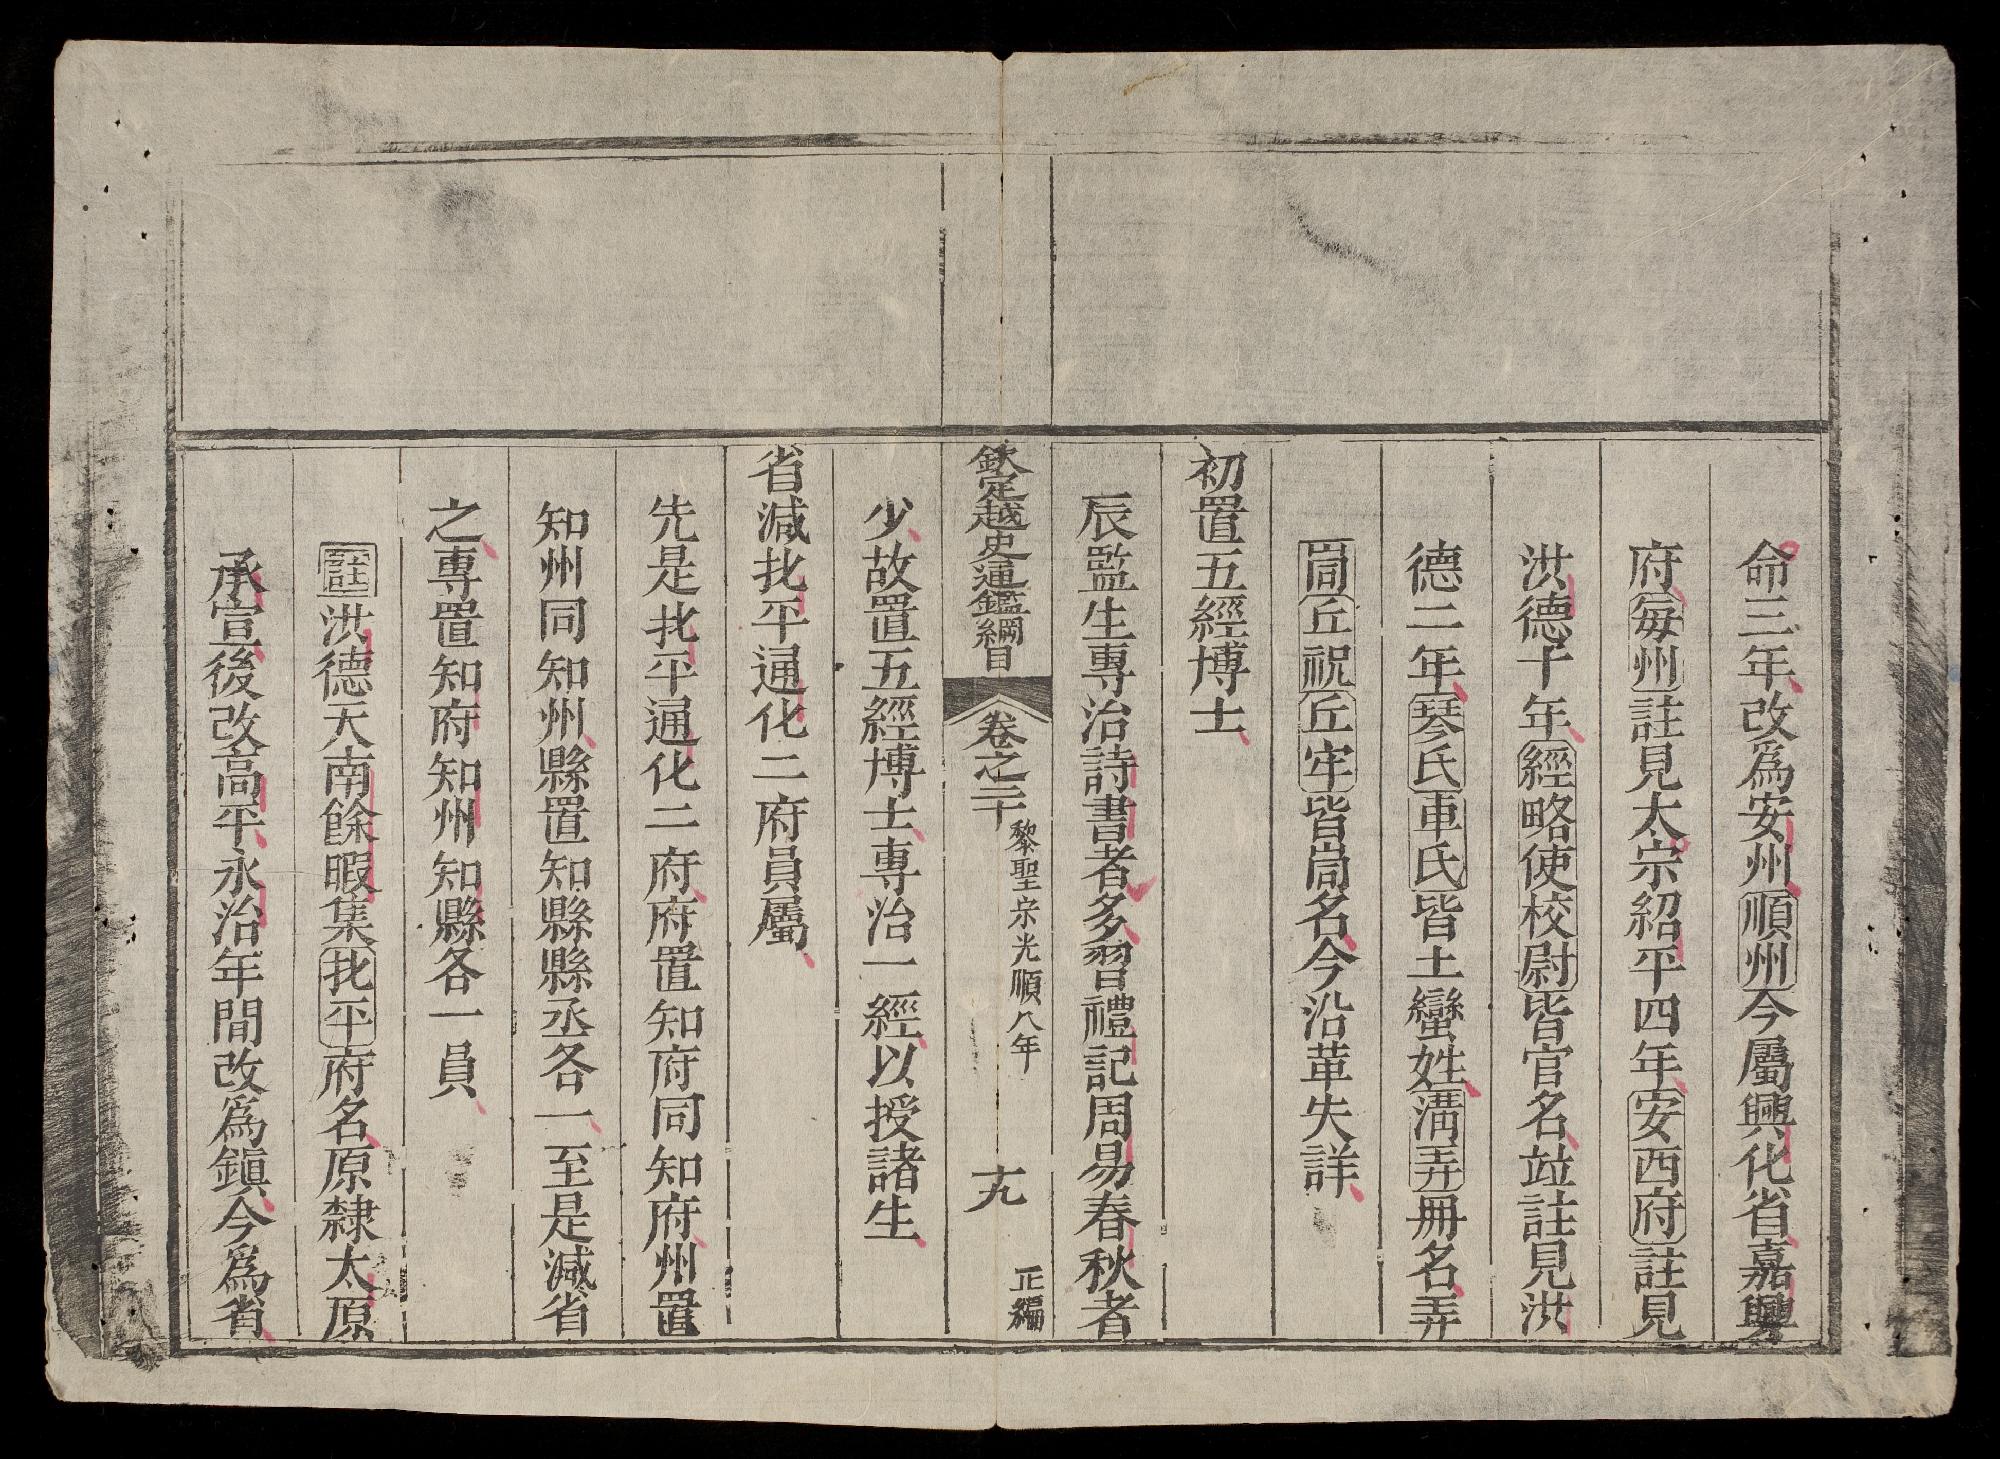 命三年改爲安州順州今屬興化省嘉興
府每州註見太宗紹平四年安西府註見
洪德十年經略使校尉皆官名竝註見洪
德二年琴氏車氏皆土蠻姓溝弄冊名弄
峝丘祝丘牢皆峝名今沿革失詳
初置五經博士
辰監生專治詩書者多習禮記周易春秋者
欽定越史通鑑綱目
卷之二十
黎聖宗光順八年
十九
正編
少故置五經博士專治一經以授諸生
省減北平通化二府員屬
先是北平通化二府府置知府同知府州置
知州同知州縣置知縣縣丞各一至是減省
之專置知府知州知縣各一員
註洪德天南餘暇集北平府名原隸太原
承宣後改高平永治年間改爲鎭今爲省